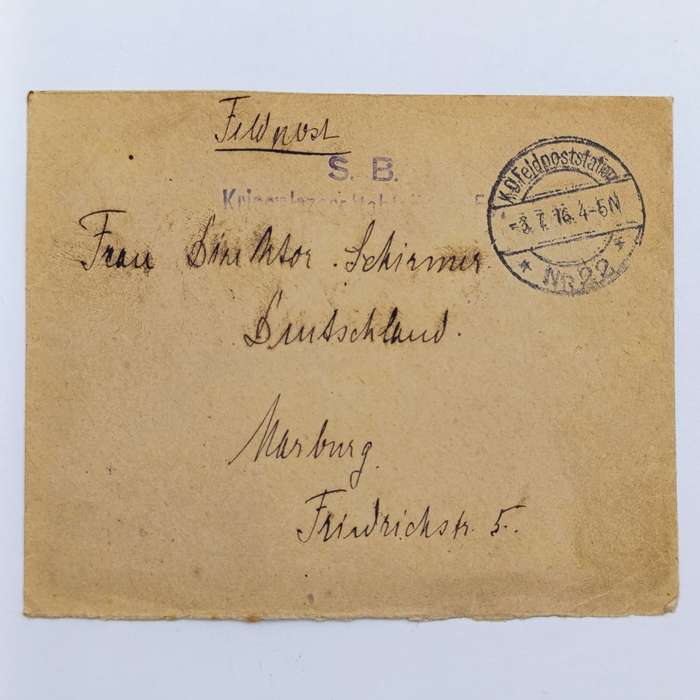 Feldpost
S. B.
K.D. Feldpoststation
-3.7.16. 4-5N
* Nr. 22 *
Frau Direktor Schirmer.
Deutschland.
Marburg.
Friedrichstr. 5.